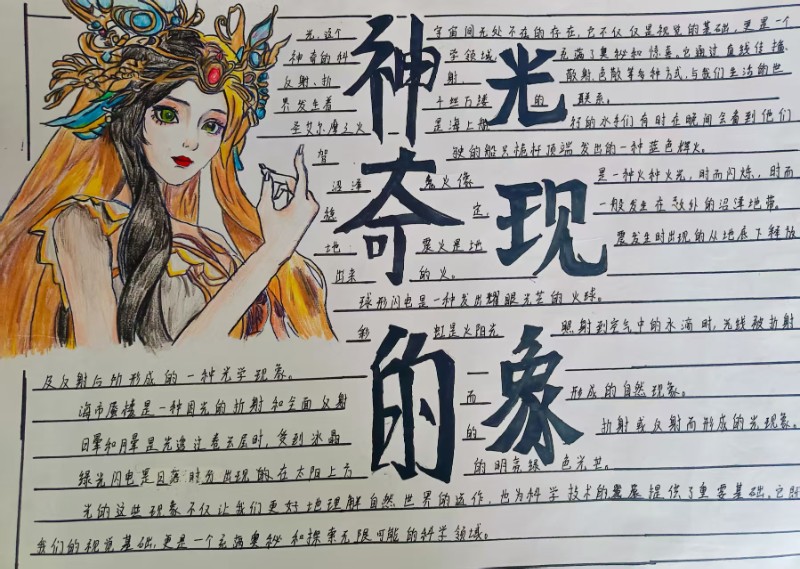 神奇的
光现象
光,这个宇宙间无处不在的存在,它不仅仅是视觉的基础,更是一个
神奇的科学领域,充满了奥秘和惊喜。它通过直线传播、
反射、折射、散射色散等多种方式,与我们生活的世
界发生着千丝万缕的联系。
圣艾尔摩之火是海上航行的水手们有时在晚间会看到他们
驾驶的船只桅杆顶端发出的一种蓝色辉火。
沼泽鬼火像是一种火种火光,时而闪烁,时而
稳定,一般发生在欧外的沼泽地带。
地震火是地震发生时出现的从地底下释放
出来的火。
球形闪电是一种发出耀眼光芒的火球。
彩虹是火阳光照射到空气中的水滴时,光线被折射
及反射后 形成的一种光学现象。
海市蜃楼是一种因光的折射和全面反射而形成的自然现象。
日晕和月晕是光透过卷云层时,受到冰晶的折射或反射而形成的光现象。
绿光闪电是日落时分出现的在太阳上方的明亮绿色光芒。
光的这些现象不仅让我们更好地理解自然世界的运作,也为科学技术的发展提供了重要基础。它既
我们的视觉基础,更是一个充满奥秘和探索无限可能的科学领域。